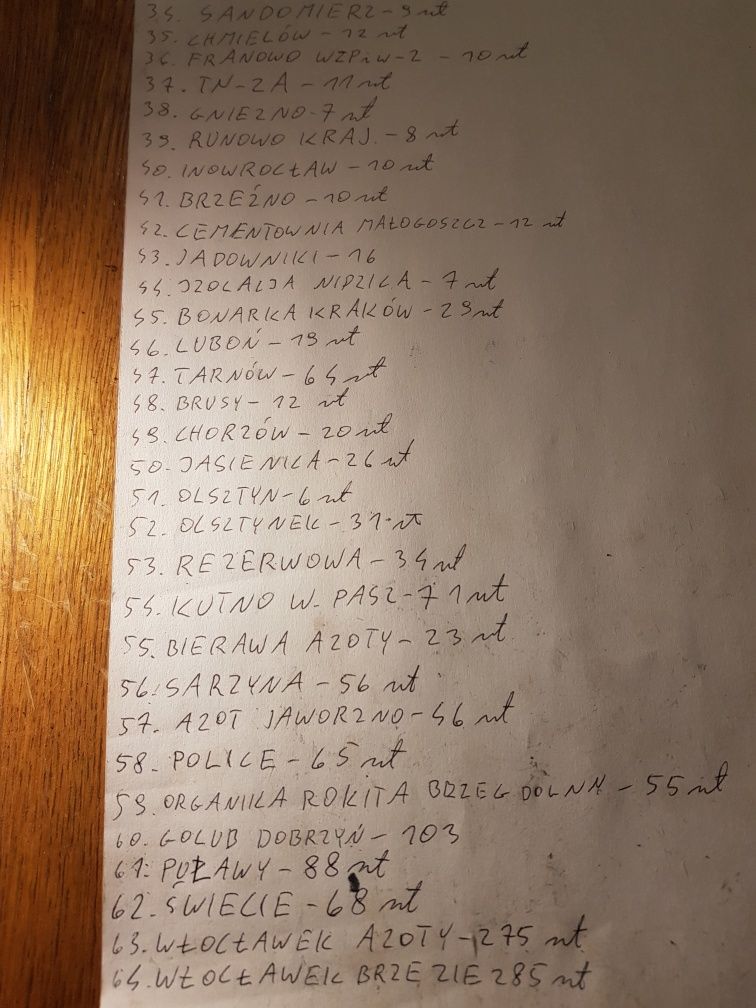 34. SANDOMIERZ - 9 szt
35. CHMIELÓW - 12 szt
36. FRANOWO WZPiW-2 - 10 szt
37. TN-2A - 11 szt
38. GNIEZNO - 7 szt
39. RUNOWO KRAJ. - 8 szt
40. INOWROCŁAW - 10 szt
41. BRZEŹNO - 10 szt
42. CEMENTOWNIA MAŁOGOSZCZ - 12 szt
43. JADOWNIKI - 16
44. IZOLACJA NIDZICA - 7 szt
45. BONARKA KRAKÓW - 29 szt
46. LUBOŃ - 19 szt
47. TARNÓW - 64 szt
48. BRUSY - 12 szt
49. CHORZÓW - 20 szt
50. JASIENICA - 26 szt
51. OLSZTYN - 6 szt
52. OLSZTYNEK - 31 szt
53. REZERWOWA - 34 szt
54. KUTNO W. PASZ - 71 szt
55. BIERAWA AZOTY - 23 szt
56. SARZYNA - 56 szt
57. AZOT JAWORZNO - 46 szt
58. POLICE - 65 szt
59. ORGANIKA ROKITA BRZEG DOLNY - 55 szt
60. GOLUB DOBRZYŃ - 103
61. PUŁAWY - 88 szt
62. ŚWIECIE - 68 szt
63. WŁOCŁAWEK AZOTY - 275 szt
64. WŁOCŁAWEK BRZEZIE 285 szt